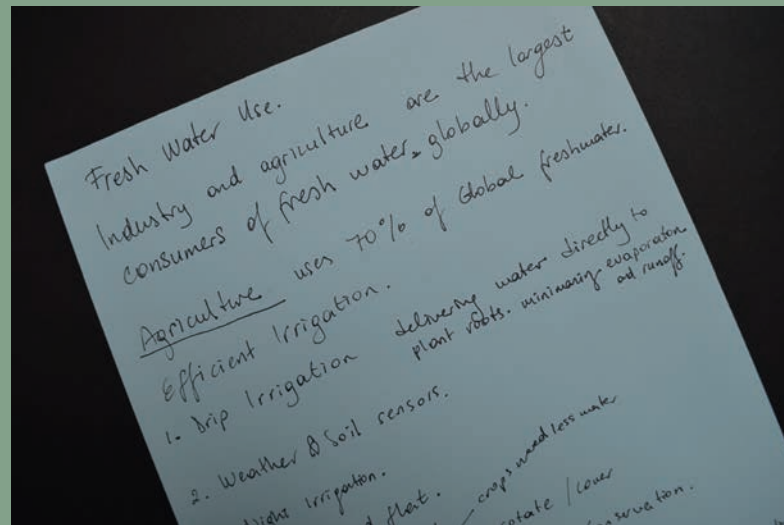 Fresh Water Use.
Industry and agriculture are the largest
consumers of fresh water, globally.
Agriculture uses 70% of Global freshwater.
Efficient Irrigation.
1. Drip Irrigation delivering water directly to
plant roots. minimising evaporation
and runoff.
2. Weather & Soil sensors.
Irrigation.
crops need less water
rotate / cover